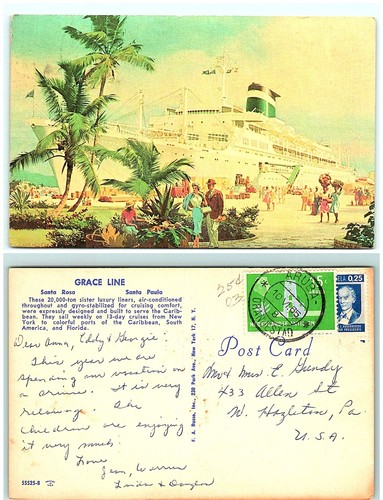 GRACE LINE
Santa Rosa Santa Paula
These 20,000-ton sister luxury liners, air-conditioned
throughout and gyro-stabilized for cruising comfort,
were expressly designed and built to serve the Carib-
bean. They sail weekly on 13-day cruises from New
York to colorful ports of the Caribbean, South
America, and Florida.
Dear Anna, Eddy & Georgie:
This year we are
spending our vacation on
a cruise. It is very
relaxing. The
children are enjoying
it very much.
Love
Jean, Warren
Linda & Douglas
55525-B
F. A. Russo, Inc., 230 Park Ave., New York 17, N. Y.
25¢
ARUBA
ORANJESTAD
5c
ELA 0,25
Post Card
Mr & Mrs. C. Gundy
433 Allen St
W. Hazleton, Pa.
U.S.A.